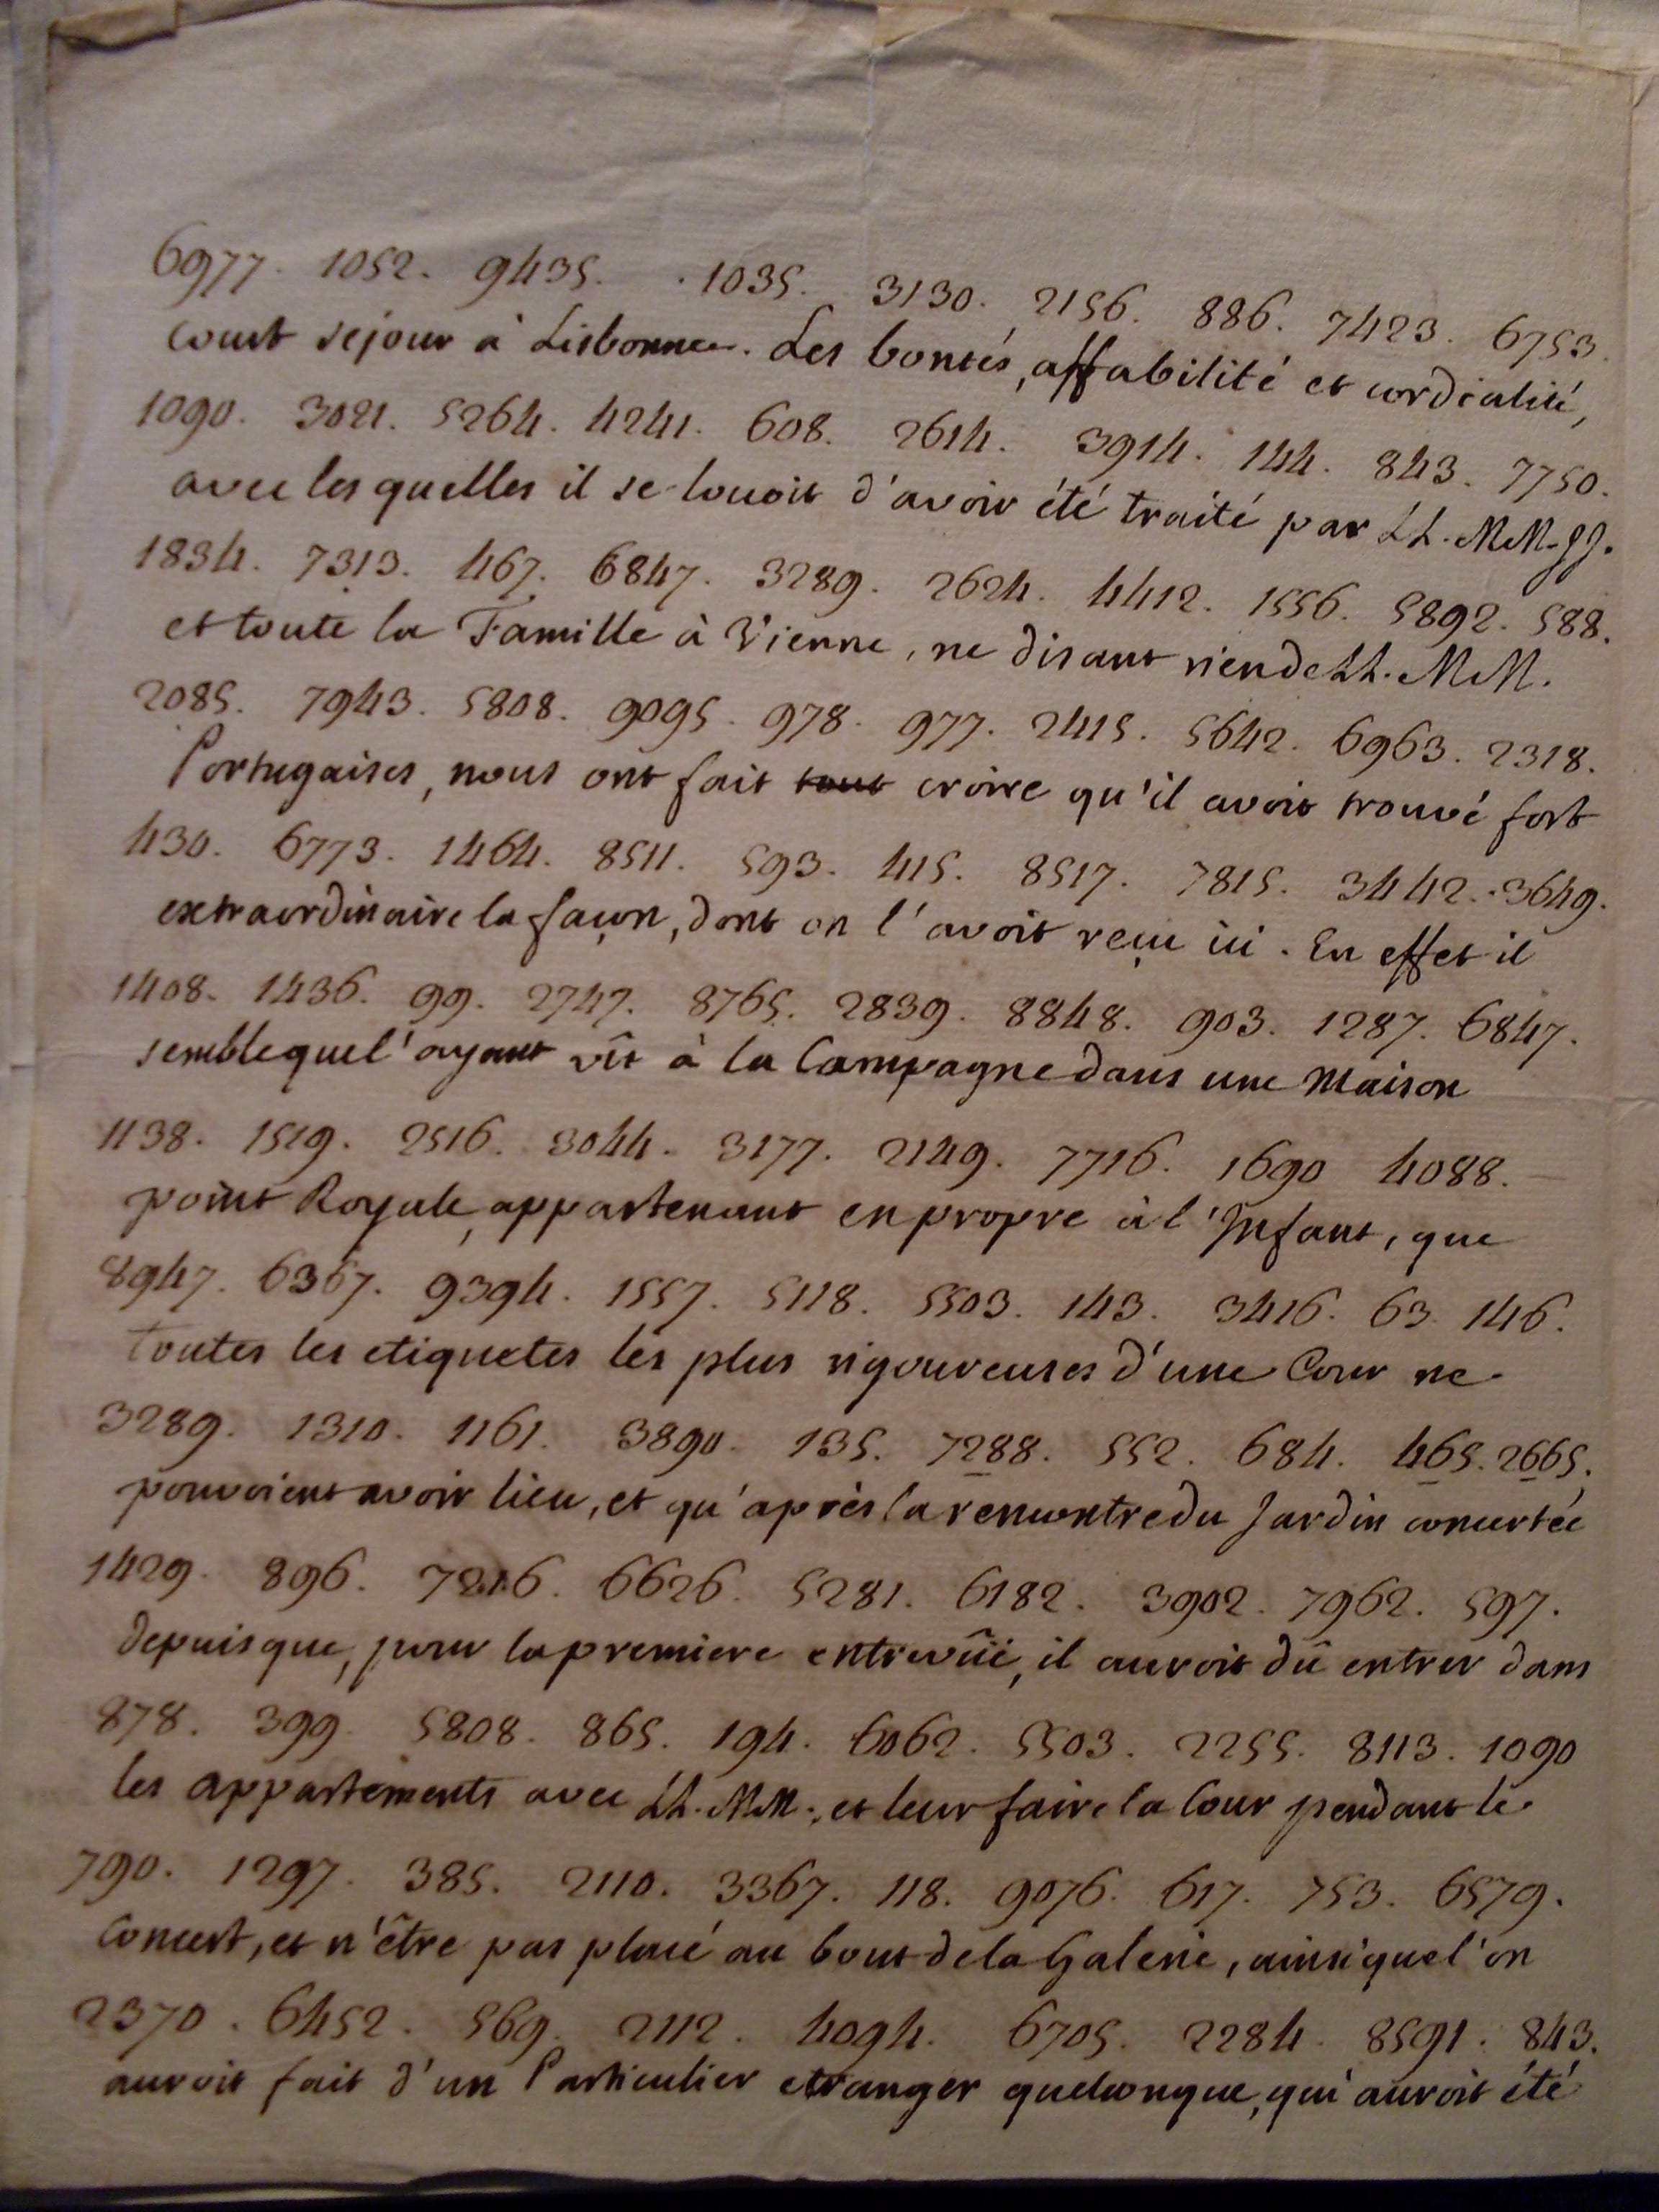 6977. 1052. 9435. . 1035. 3130. 2156. 886. 7423. 6753.
court sejour à Lisbonne. Les bontés, affabilité et cordialité,
1090. 3021. 5264. 4241. 608. 2614. 3914. 144. 843. 7750.
avec les quelles il se louoit d'avoir été traité par LL. MM. JJ.
1834. 7313. 467. 6847. 3289. 2624. 4412. 1556. 5892. 588.
et toute la Famille à Vienne, ne disant rien de LL. MM.
2085. 7943. 5808. 9095. 978. 977. 2415. 5642. 6963. 2318.
Portugaises, nous ont fait tout croire qu'il avoit trouvé fort
430. 6773. 1464. 8511. 593. 415. 8517. 7815. 3442. 3649.
extraordinaire la façon, dont on l'avoit reçu ici. En effet il
1408. 1436. 99. 2747. 8765. 2839. 8848. 903. 1287. 6847.
semble que l'ayant vît à la Campagne dans une Maison
1138. 1519. 2516. 3044. 3177. 2149. 7716. 1690 4088.
point Royale, appartenant en propre à l'Infant, que
8947. 6367. 9394. 1557. 5118. 5503. 143. 3416. 63. 146.
toutes les etiquetes les plus rigoureuses d'une Cour ne
3289. 1310. 1161. 3890. 135. 7288. 552. 684. 465. 2665.
pouvoient avoir lieu, et qu'après la rencontre du Jardin concertée
1429. 896. 7216. 6626. 5281. 6182. 3902. 7962. 597.
depuis que, pour la premiere entrevûë, il auroit dû entrer dans
878. 399. 5808. 865. 194. 6062. 5503. 2255. 8113. 1090
les appartements avec LL. MM., et leur faire la Cour pendant le
790. 1297. 385. 2110. 3367. 118. 9076. 617. 753. 6579.
Concert, et n'être pas placé au bout de la Galerie, ainsi que l'on
2370. 6452. 569. 2112. 4094. 6705. 2284. 8591. 843.
auroit fait d'un Particulier etranger quelconque, qui auroit été